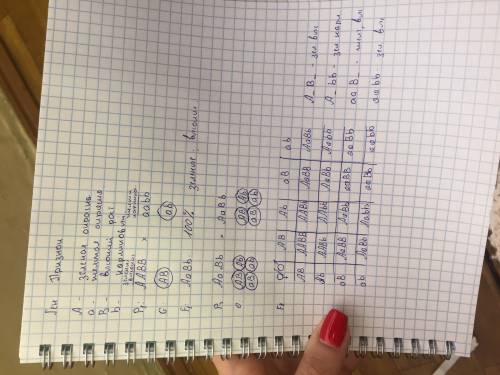 Ген Признак
A - зеленая окраска
a - желтая окраска
B - высокий рост
b - карликовый
P₁ AABB × aabb
G (AB) (ab)
F₁ AaBb 100% зеленые, высокие
P₂ AaBb × AaBb
G (AB) (Ab) (AB) (Ab)
(aB) (ab) (aB) (ab)
F₂ AB Ab aB ab
AB AABB AABb AaBB AaBb
Ab AABb AAbb AaBb Aabb
aB AaBB AaBb aaBB aaBb
ab AaBb Aabb aaBb aabb
A_B_ - зел. выс
A_bb - зел. карл
aaB_ - желт, выс
aabb